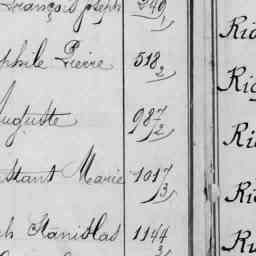 François Joseph 249/1
phile Pierre 518/2
Auguste 987/2
stant Marie 1017/3
ph Stanislas 1144/3
Ric
Rig
Ric
Ric
Ri